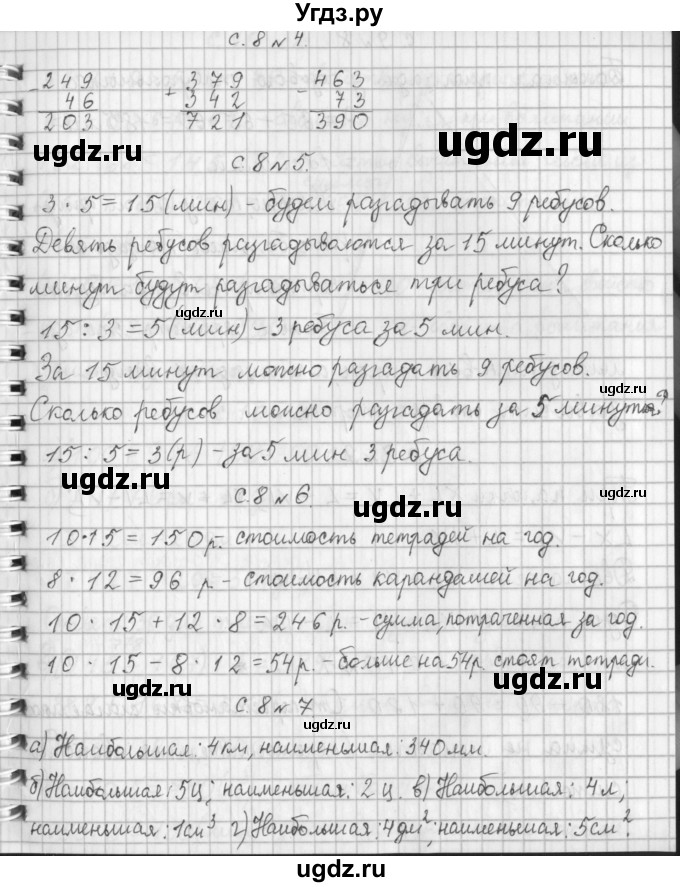 Угдз.ру
с. 8 № 4.
- 249 + 379 - 463
46 342 73
203 721 390
ugdz.ru ugdz.ru
с. 8 № 5.
3 · 5 = 15 (мин) - будем разгадывать 9 ребусов.
Девять ребусов разгадываются за 15 минут. Сколько
минут будут разгадываться три ребуса?
ugdz.ru
15 : 3 = 5 (мин) - 3 ребуса за 5 мин.
ugdz.ru
За 15 минут можно разгадать 9 ребусов.
ugdz.ru
Сколько ребусов можно разгадать за 5 минут?
15 : 5 = 3 (р) - за 5 мин 3 ребуса.
ugdz.ru
с. 8 № 6.
ugdz.ru
ugdz.ru
10 · 15 = 150 р. стоимость тетрадей на год.
8 · 12 = 96 р - стоимость карандашей на год.
10 · 15 + 12 · 8 = 246 р. - сумма, потраченная за год.
10 · 15 - 8 · 12 = 54 р. - больше на 54 р. стоят тетради.
ugdz.ru ugdz.ru
с. 8 № 7
ugdz.ru
а) Наибольшая: 4 км, наименьшая: 340 мм.
б) Наибольшая: 5 ц; наименьшая: 2 ц. в) Наибольшая: 4 л;
ugdz.ru
наименьшая: 1 см³ г) Наибольшая: 4 дм²; наименьшая: 5 см².
ugdz.ru
ugdz.ru